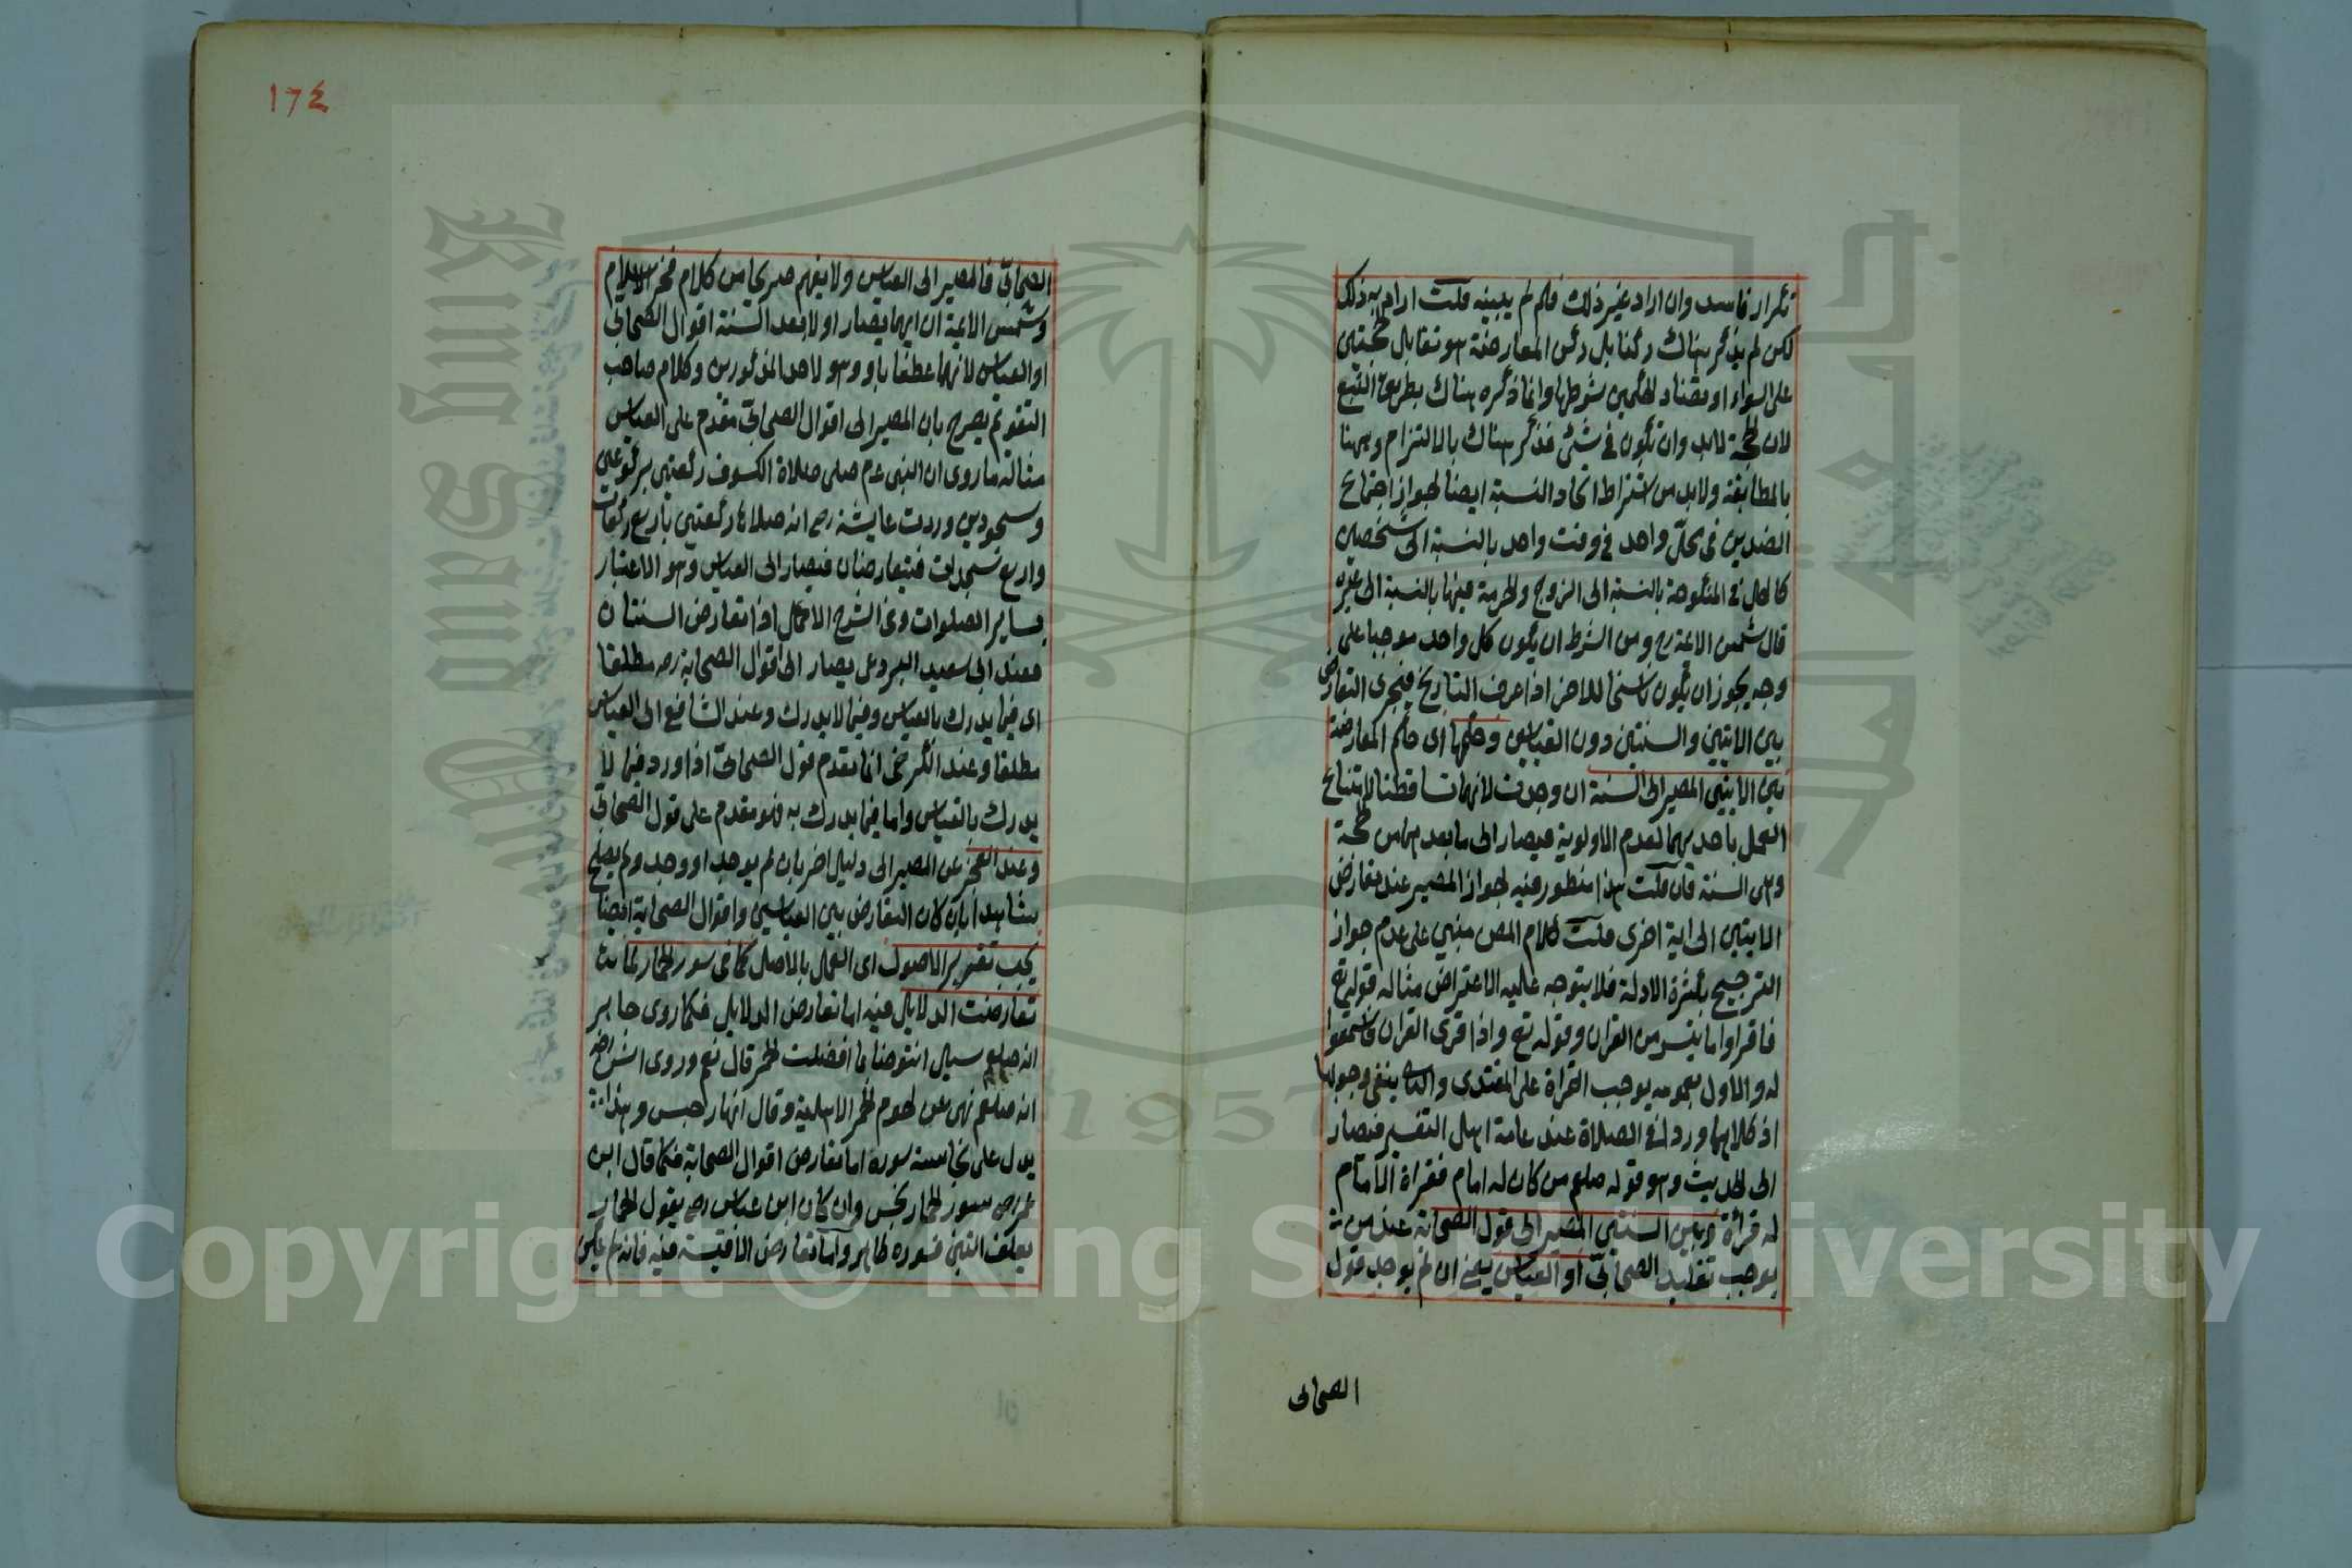 تكرار فاسد وان اراد غير ذلك فلم لم يبينه قلت اراد به ذلك
لكن لم يذكر هناك ركنا بل ركن المعارضة هو تقابل الحجتين
على السواء او تضاد الحكمين شرطها وانما ذكره هناك بطريق التبع
لان الحجة لابد وان تكون في شئ فذكر هناك بالالتزام وههنا
بالمطابقة ولابد من اشتراط اتحاد النسبة ايضا لجواز اجتماع
الضدين في محل واحد في وقت واحد بالنسبة الى شخصين
كالحل في المنكوحة بالنسبة الى الزوج والحرمة فيها بالنسبة الى غيره
قال شمس الائمة رح ومن الشرط ان يكون كل واحد موجبا على
وجه يجوز ان يكون ناسخا للاخر اذا عرف التاريخ فيجرى التعارض
بين الايتين والسنتين دون القياسين وحكمها اى حكم المعارضة
بين الايتين المصير الى السنة ان وجدت لانهما تساقطتا لامتناع
العمل باحديهما لعدم الاولوية فيصار الى ما بعدهما من الحجة
وهى السنة فان قلت هذا منظور فيه لجواز المصير عند تعارض
الايتين الى اية اخرى قلت كلام المص مبنى على عدم جواز
الترجيح بكثرة الادلة فلا يتوجه عليه الاعتراض مثاله قوله تع
فاقراوا ما تيسر من القران وقوله تع واذا قرئ القران فاستمعوا
له والاول بعمومه يوجب القراة على المقتدى والثانى ينفى وجوبها
اذ كلاهما وردا في الصلاة عند عامة اهل التفسير فيصار
الى الحديث وهو قوله صلعم من كان له امام فقراة الامام
له قراة وبين السنتين المصير الى قول الصحابة عند من
يوجب تقليد الصحابى او القياس يعنى ان لم يوجد قول
الصحابى
١٧٤
الصحابى فالمصير الى القياس ولا يفهم صريحا من كلام فخر الاسلام
وشمس الائمة ان ايهما يصار اولا بعد السنة اقوال الصحابى
او القياس لانهما عطفا باو وهو لاحد المذكورين وكلام صاحب
التقويم يصرح بان المصير الى اقوال الصحابى مقدم على القياس
مثاله ما روى ان النبى عم صلى صلاة الكسوف ركعتين بركوعين
وسجودين وردت عايشة رض انه صلاها ركعتين باربع ركوعات
واربع سجدات فيتعارضان فيصار الى القياس وهو الاعتبار
بساير الصلوات وفى الشرح الاكمل اذا تعارض السنتان
فعند ابى سعيد البردعى يصار الى اقوال الصحابة رض مطلقا
اى فيما يدرك بالقياس وفيما لا يدرك وعند الشافعى الى القياس
مطلقا وعند الكرخى انما يقدم قول الصحابى اذا ورد فيما لا
يدرك بالقياس واما فيما يدرك به فهو مقدم على قول الصحابى
وعند العجز عن المصير الى دليل اخر بان لم يوجد او وجد ولم يصلح
شاهدا بان كان التعارض بين القياسين واقوال الصحابة ايضا
يجب تقرير الاصول اى العمل بالاصل كما فى سور الحمار لما
تعارضت الدلايل فيه اما تعارض الدلايل فكما روى جابر
انه صلعم سيل انتوضا بما افضلت الحمر قال نعم وروى انس رض
انه صلعم نهى عن لحوم الحمر الاهلية وقال انها رجس وهذا
يدل على نجاسة سوره اما تعارض اقوال الصحابة فكما قال ابن
عمر رض سور الحمار نجس وان كان ابن عباس رض يقول الحمار
يعلف التبن فسوره طاهر واما تعارض الاقيسة فيه فانه لم يمكن
King Saud University
1957
Copyright © King Saud University